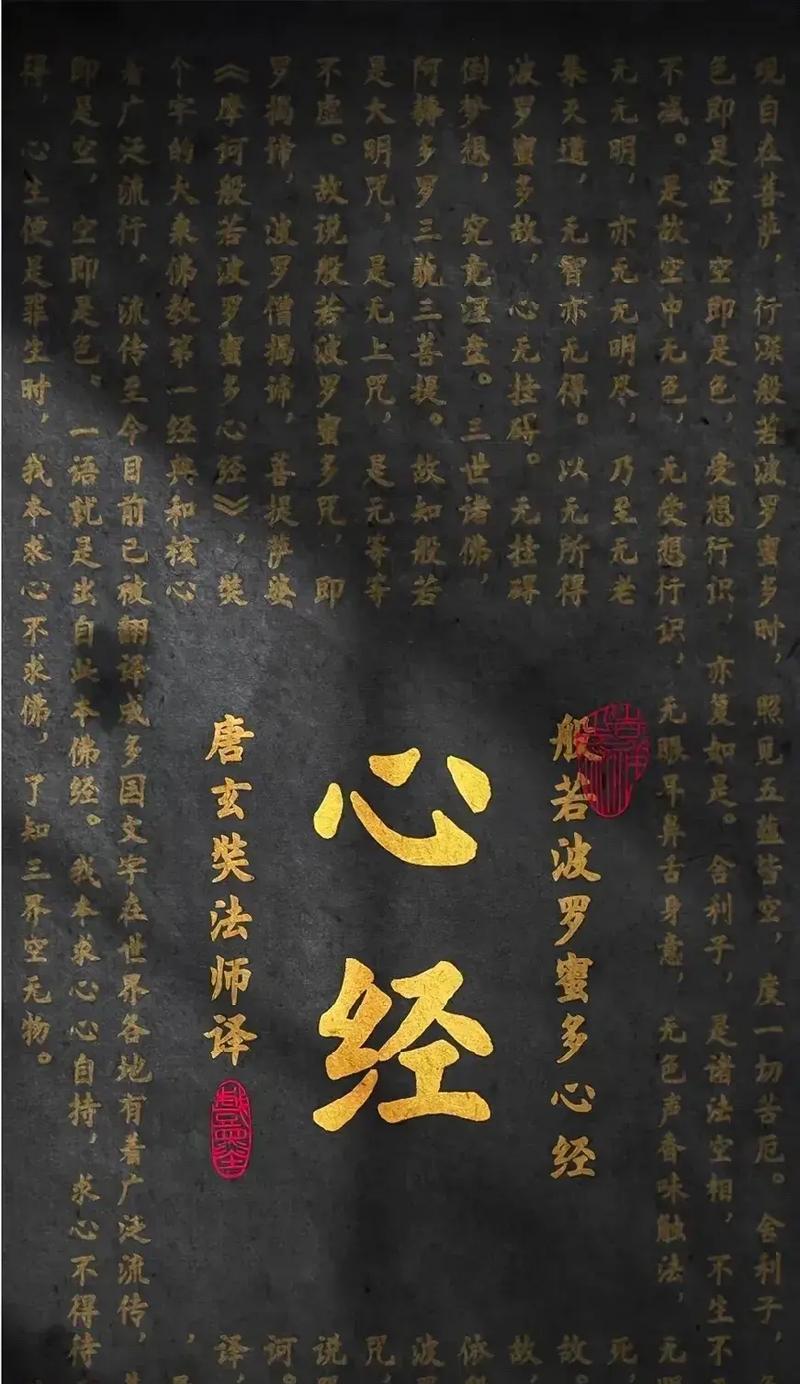 观自在菩萨，行深般若波罗蜜多时，照见五蕴皆空，度一切苦厄。舍利子，
色即是空，空即是色，受想行识，亦复如是。舍利子，是诸法空相，不生不
不减。是故空中无色，无受想行识，无眼耳鼻舌身意，无色声香味触法，无
无无明，亦无无明尽，乃至无老死，
集灭道，无智亦无得。以无所得故。
波罗蜜多故，心无挂碍。无挂碍故，
倒梦想，究竟涅盘。三世诸佛，依
阿耨多罗三藐三菩提。故知般若波
是大明咒，是无上咒，是无等等咒，
不虚。故说般若波罗蜜多咒，即说
罗揭谛，波罗僧揭谛，菩提萨婆诃。
《摩诃般若波罗蜜多心经》，奘译，
个字的大乘佛教第一经典和核心，
着广泛流行，流传至今目前已被翻译成多国文字在世界各地有着广泛流传，
即是空，空即是色。一语就是出自此本佛经。我本求心心自持，求心不得待
得，心生便是罪生时，我本求心不求佛，了知三界空无物。
般若波罗蜜多心经
心经
唐玄奘法师译